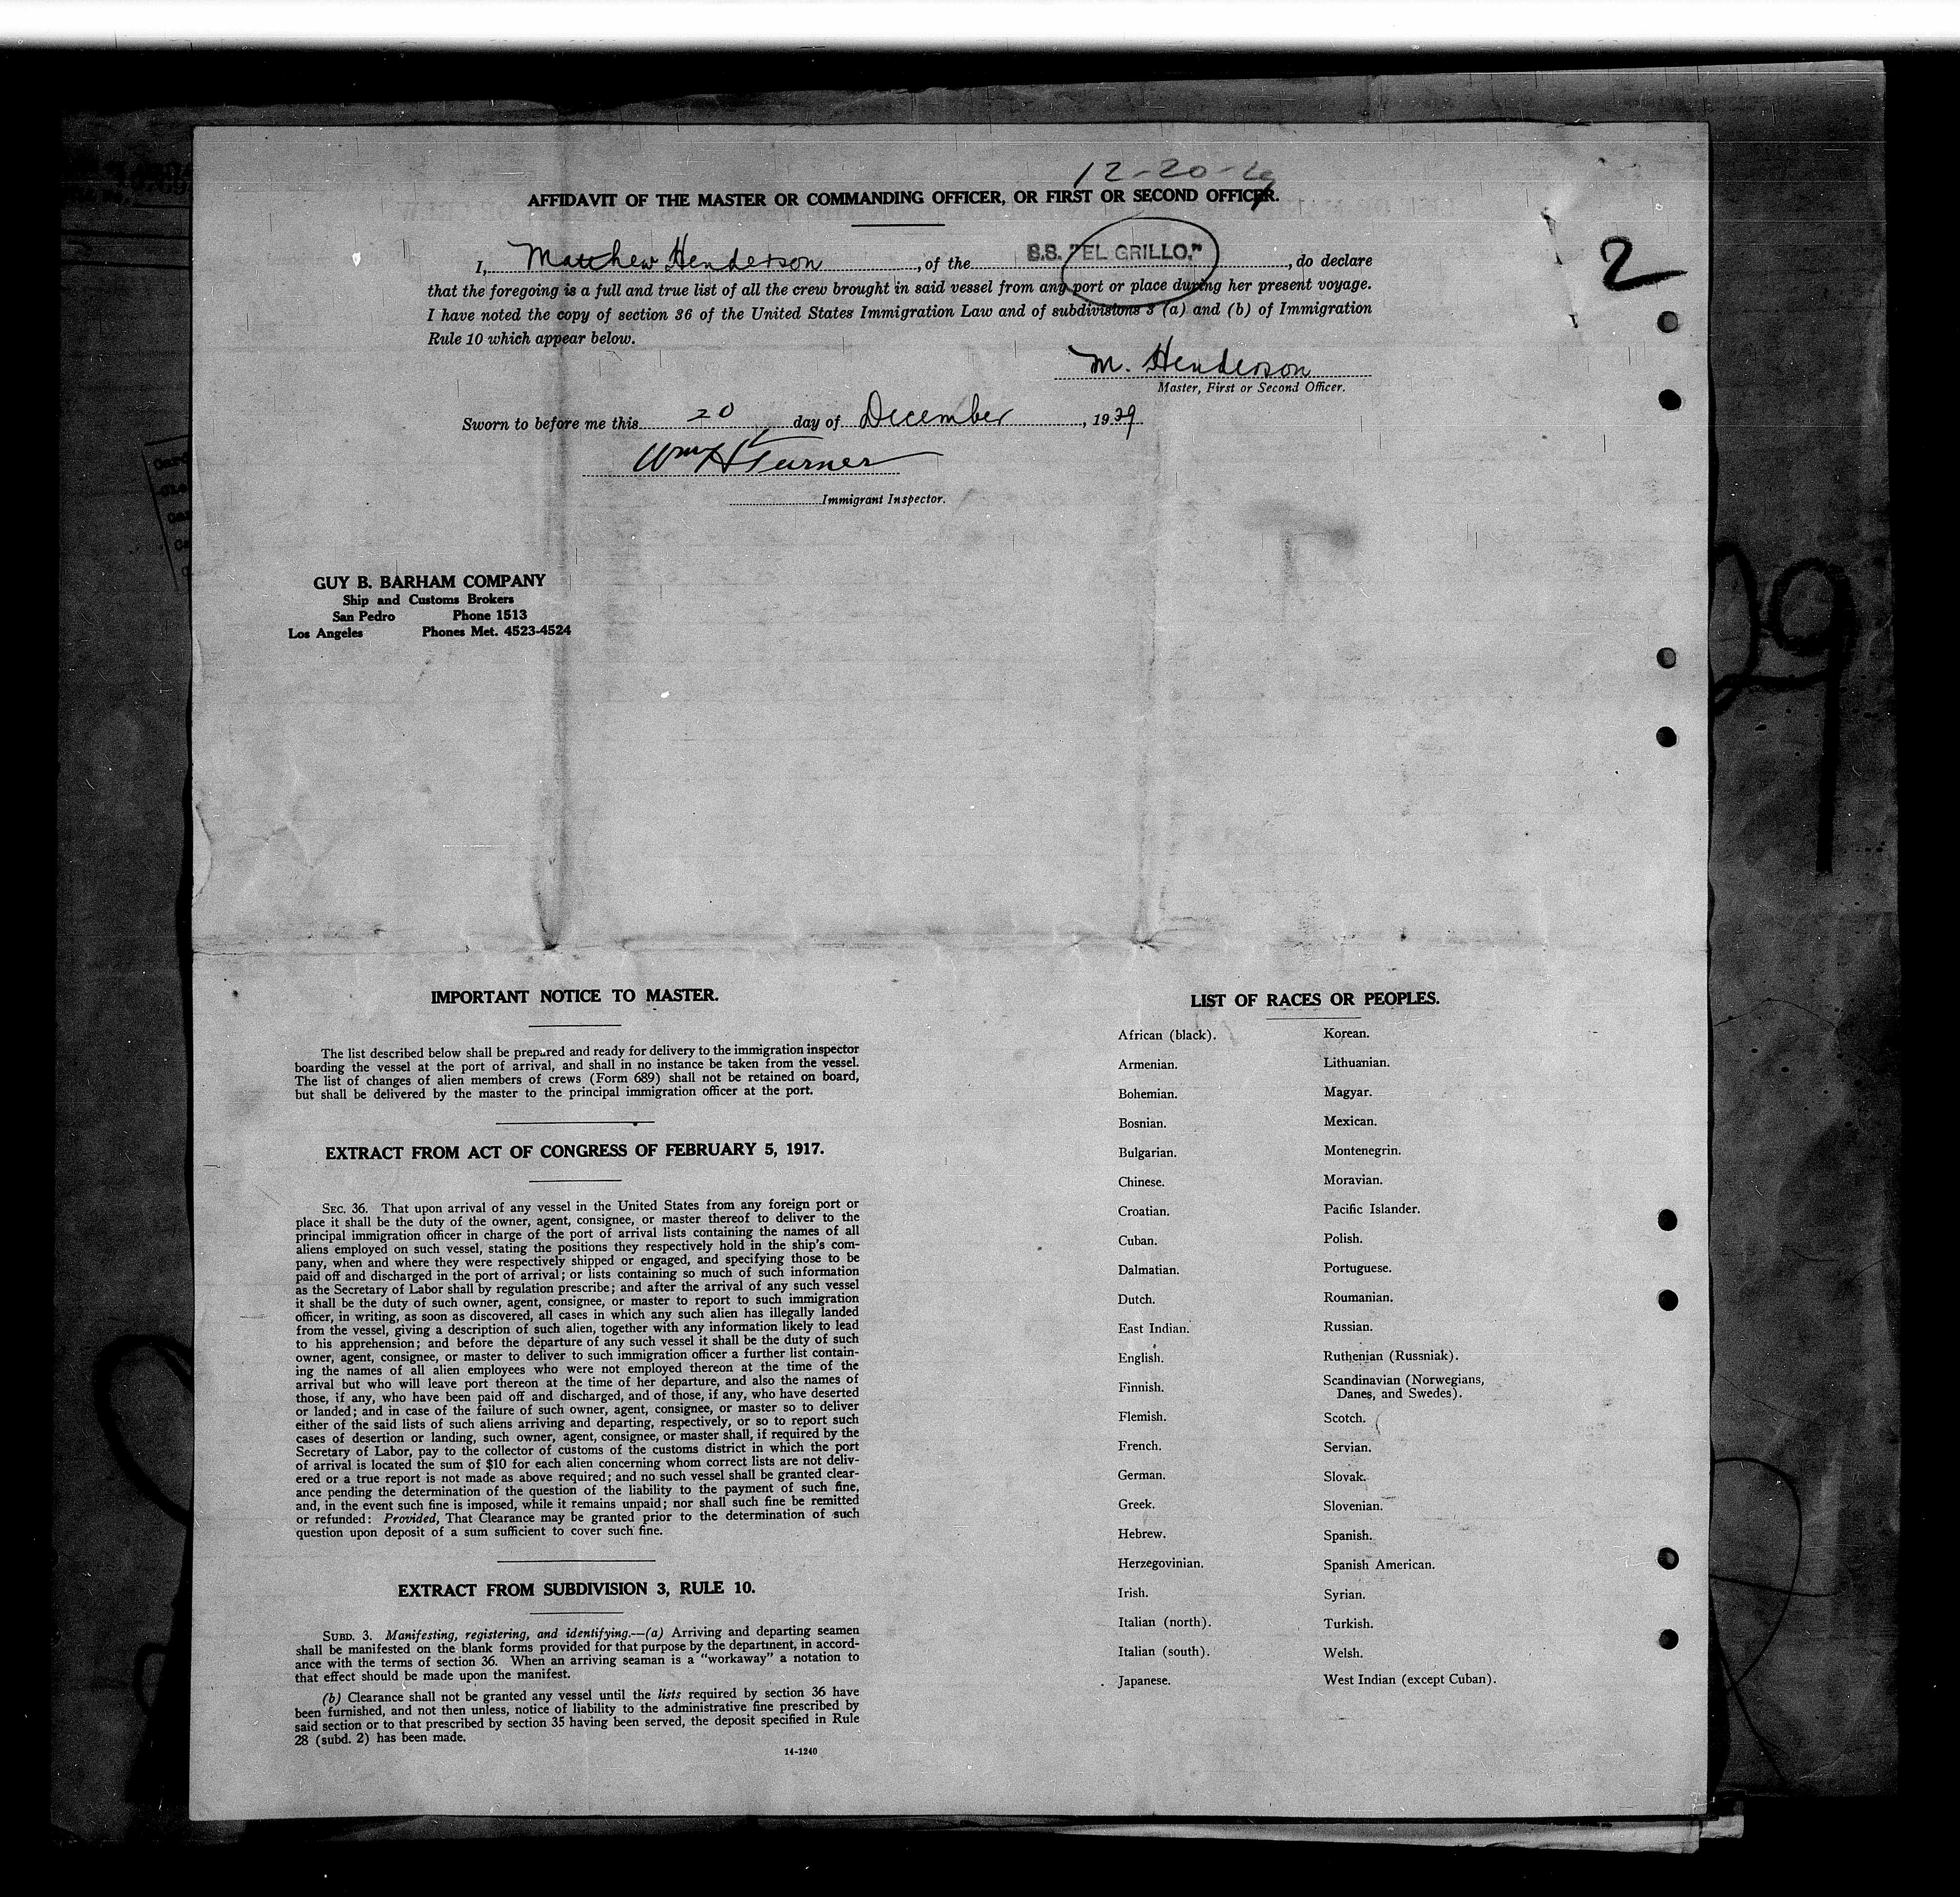 12-20-29
AFFIDAVIT OF THE MASTER OR COMMANDING OFFICER, OR FIRST OR SECOND OFFICER.
2
I, Matthew Henderson, of the S.S. "EL GRILLO.", do declare
that the foregoing is a full and true list of all the crew brought in said vessel from any port or place during her present voyage.
I have noted the copy of section 36 of the United States Immigration Law and of subdivisions 3 (a) and (b) of Immigration
Rule 10 which appear below.
M. Henderson
Master, First or Second Officer.
Sworn to before me this 20 day of December, 1929
Wm H Turner
Immigrant Inspector.
GUY B. BARHAM COMPANY
Ship and Customs Brokers
San Pedro Phone 1513
Los Angeles Phones Met. 4523-4524
29
IMPORTANT NOTICE TO MASTER.
The list described below shall be prepared and ready for delivery to the immigration inspector
boarding the vessel at the port of arrival, and shall in no instance be taken from the vessel.
The list of changes of alien members of crews (Form 689) shall not be retained on board,
but shall be delivered by the master to the principal immigration officer at the port.
EXTRACT FROM ACT OF CONGRESS OF FEBRUARY 5, 1917.
SEC. 36. That upon arrival of any vessel in the United States from any foreign port or
place it shall be the duty of the owner, agent, consignee, or master thereof to deliver to the
principal immigration officer in charge of the port of arrival lists containing the names of all
aliens employed on such vessel, stating the positions they respectively hold in the ship's com-
pany, when and where they were respectively shipped or engaged, and specifying those to be
paid off and discharged in the port of arrival; or lists containing so much of such information
as the Secretary of Labor shall by regulation prescribe; and after the arrival of any such vessel
it shall be the duty of such owner, agent, consignee, or master to report to such immigration
officer, in writing, as soon as discovered, all cases in which any such alien has illegally landed
from the vessel, giving a description of such alien, together with any information likely to lead
to his apprehension; and before the departure of any such vessel it shall be the duty of such
owner, agent, consignee, or master to deliver to such immigration officer a further list contain-
ing the names of all alien employees who were not employed thereon at the time of the
arrival but who will leave port thereon at the time of her departure, and also the names of
those, if any, who have been paid off and discharged, and of those, if any, who have deserted
or landed; and in case of the failure of such owner, agent, consignee, or master so to deliver
either of the said lists of such aliens arriving and departing, respectively, or so to report such
cases of desertion or landing, such owner, agent, consignee, or master shall, if required by the
Secretary of Labor, pay to the collector of customs of the customs district in which the port
of arrival is located the sum of $10 for each alien concerning whom correct lists are not deliv-
ered or a true report is not made as above required; and no such vessel shall be granted clear-
ance pending the determination of the question of the liability to the payment of such fine,
and, in the event such fine is imposed, while it remains unpaid; nor shall such fine be remitted
or refunded: Provided, That Clearance may be granted prior to the determination of such
question upon deposit of a sum sufficient to cover such fine.
EXTRACT FROM SUBDIVISION 3, RULE 10.
SUBD. 3. Manifesting, registering, and identifying.—(a) Arriving and departing seamen
shall be manifested on the blank forms provided for that purpose by the department, in accord-
ance with the terms of section 36. When an arriving seaman is a "workaway" a notation to
that effect should be made upon the manifest.
(b) Clearance shall not be granted any vessel until the lists required by section 36 have
been furnished, and not then unless, notice of liability to the administrative fine prescribed by
said section or to that prescribed by section 35 having been served, the deposit specified in Rule
28 (subd. 2) has been made.
14-1240
LIST OF RACES OR PEOPLES.
African (black).
Armenian.
Bohemian.
Bosnian.
Bulgarian.
Chinese.
Croatian.
Cuban.
Dalmatian.
Dutch.
East Indian.
English.
Finnish.
Flemish.
French.
German.
Greek.
Hebrew.
Herzegovinian.
Irish.
Italian (north).
Italian (south).
Japanese.
Korean.
Lithuanian.
Magyar.
Mexican.
Montenegrin.
Moravian.
Pacific Islander.
Polish.
Portuguese.
Roumanian.
Russian.
Ruthenian (Russniak).
Scandinavian (Norwegians,
Danes, and Swedes).
Scotch.
Servian.
Slovak.
Slovenian.
Spanish.
Spanish American.
Syrian.
Turkish.
Welsh.
West Indian (except Cuban).